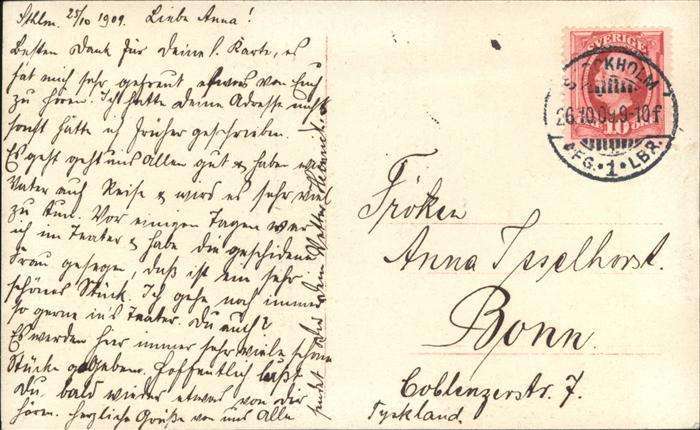 Sthlm. 25/10 1909. Liebe Anna!
Besten Dank für Deine l. Karte, es
hat mich sehr gefreut etwas von Euch
zu hören. Ich hatte Deine Adresse nicht
sonst hätte ich früher geschrieben.
Es geht uns Allen gut & haben
Vater auf Reise & wird es sehr viel
zu tun. Vor einigen Tagen war
ich im Teater & habe die geschiedene
Frau gesehen, daß ist ein sehr
schönes Stück. Ich gehe noch immer
so gerne in's Teater. Du auch?
Es werden hier immer sehr viele schöne
Stücke gegeben. Hoffentlich läßt
Du bald wieder etwas von Dir
hören. Herzliche Grüße von uns Alle
sendet Dir Dein Vetter
SVERIGE
10
STOCKHOLM
26.10.09 9-10 F
AFG. 1. LBR.
Fröken
Anna Isselhorst.
Bonn.
Coblenzerstr. 7.
Tyskland.